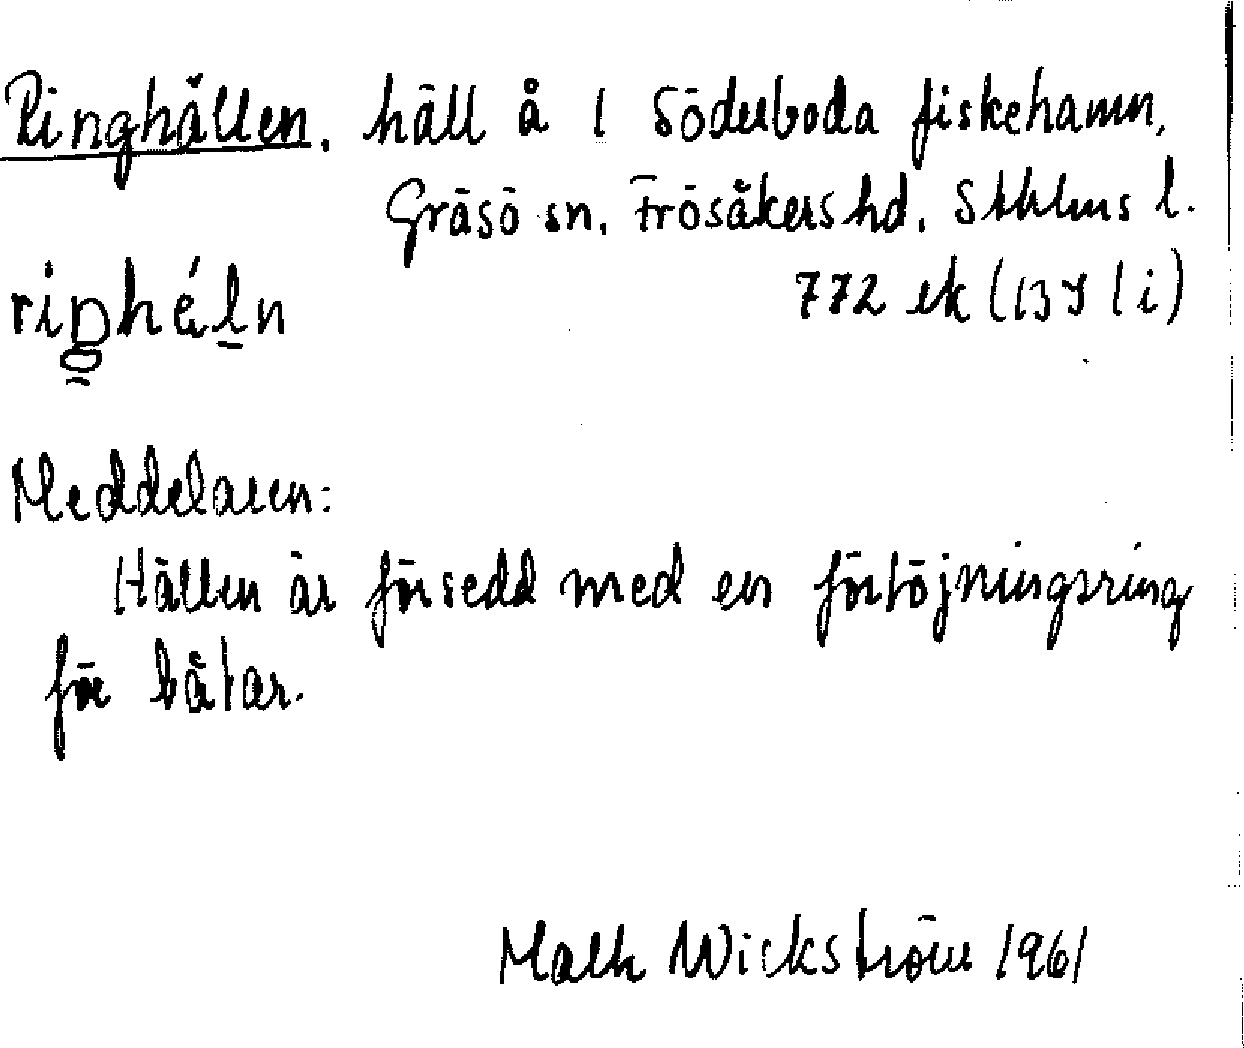 Ringhällen, häll å l Söderboda fiskehamn,
Gräsö sn, Frösåkers hd, Sthlms l.
772 ek (13 I 1 i)
Meddelaren:
Hällen är försedd med en förtöjningsring
för båtar.
Wickström 1961